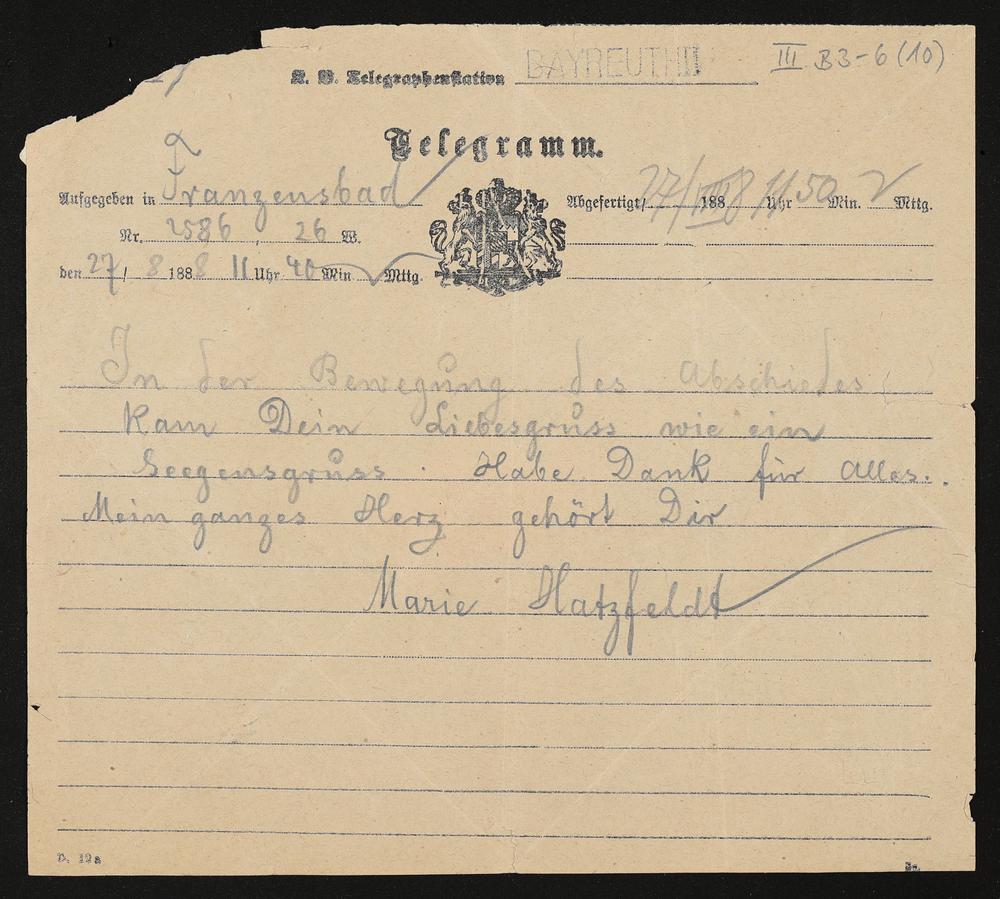 III B3-6 (10)
K. B. Telegraphenstation BAYREUTH II
Telegramm.
Aufgegeben in Franzensbad
Nr. 2586, 26 W.
den 27/8 1888 11 Uhr 40 Min Mttg.
Abgefertigt, 27/VIII 1888 11 Uhr 50 Min. Mttg.
In der Bewegung des Abschiedes
kam Dein Liebesgruss wie ein
Seegensgruss. Habe Dank für Alles.
Mein ganzes Herz gehört Dir
Marie Hatzfeldt
D. 12a